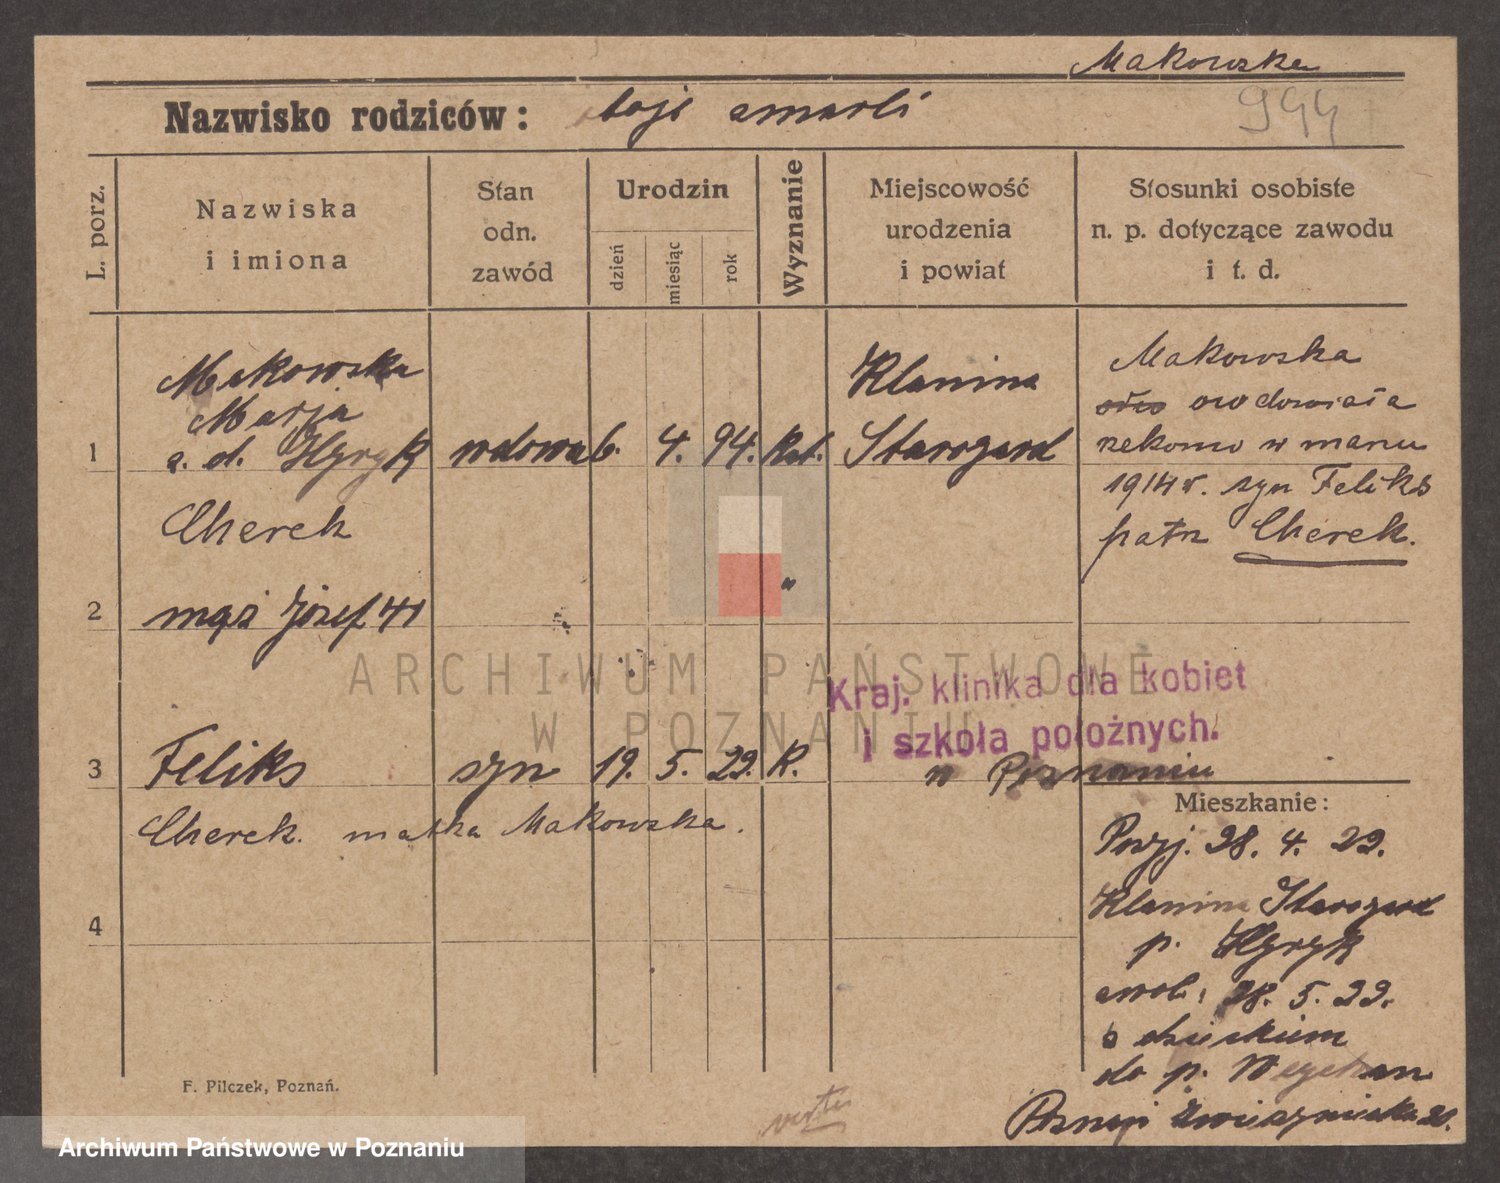 Makowska
944
Nazwisko rodziców: oboje zmarli
L. porz.
Nazwiska
i imiona
Stan
odn.
zawód
Urodzin
dzień
miesiąc
rok
Wyznanie
Miejscowość
urodzenia
i powiat
Stosunki osobiste
n. p. dotyczące zawodu
i t. d.
Makowska
Marja
1 z. d. Hyryk wdowa 6. 4. 94. kat.
Klanina
Starogard
Makowska
owdowiała
rekomo w marcu
1914 r. syn Feliks
patrz Cherek.
Cherek
2 mąż Józef 41 "
Kraj. klinika dla kobiet
i szkoła położnych.
w Poznaniu
3 Feliks syn 19. 5. 29. k.
Cherek. matka Makowska.
4
Mieszkanie:
Przyj. 28. 4. 29.
Klanina Starogard
p. Hyryk
zwol. 28. 5. 29.
z dzieckiem
do p.
Poznań
F. Pilczek, Poznań.
verte
ARCHIWUM PAŃSTWOWE
W POZNANIU
Archiwum Państwowe w Poznaniu